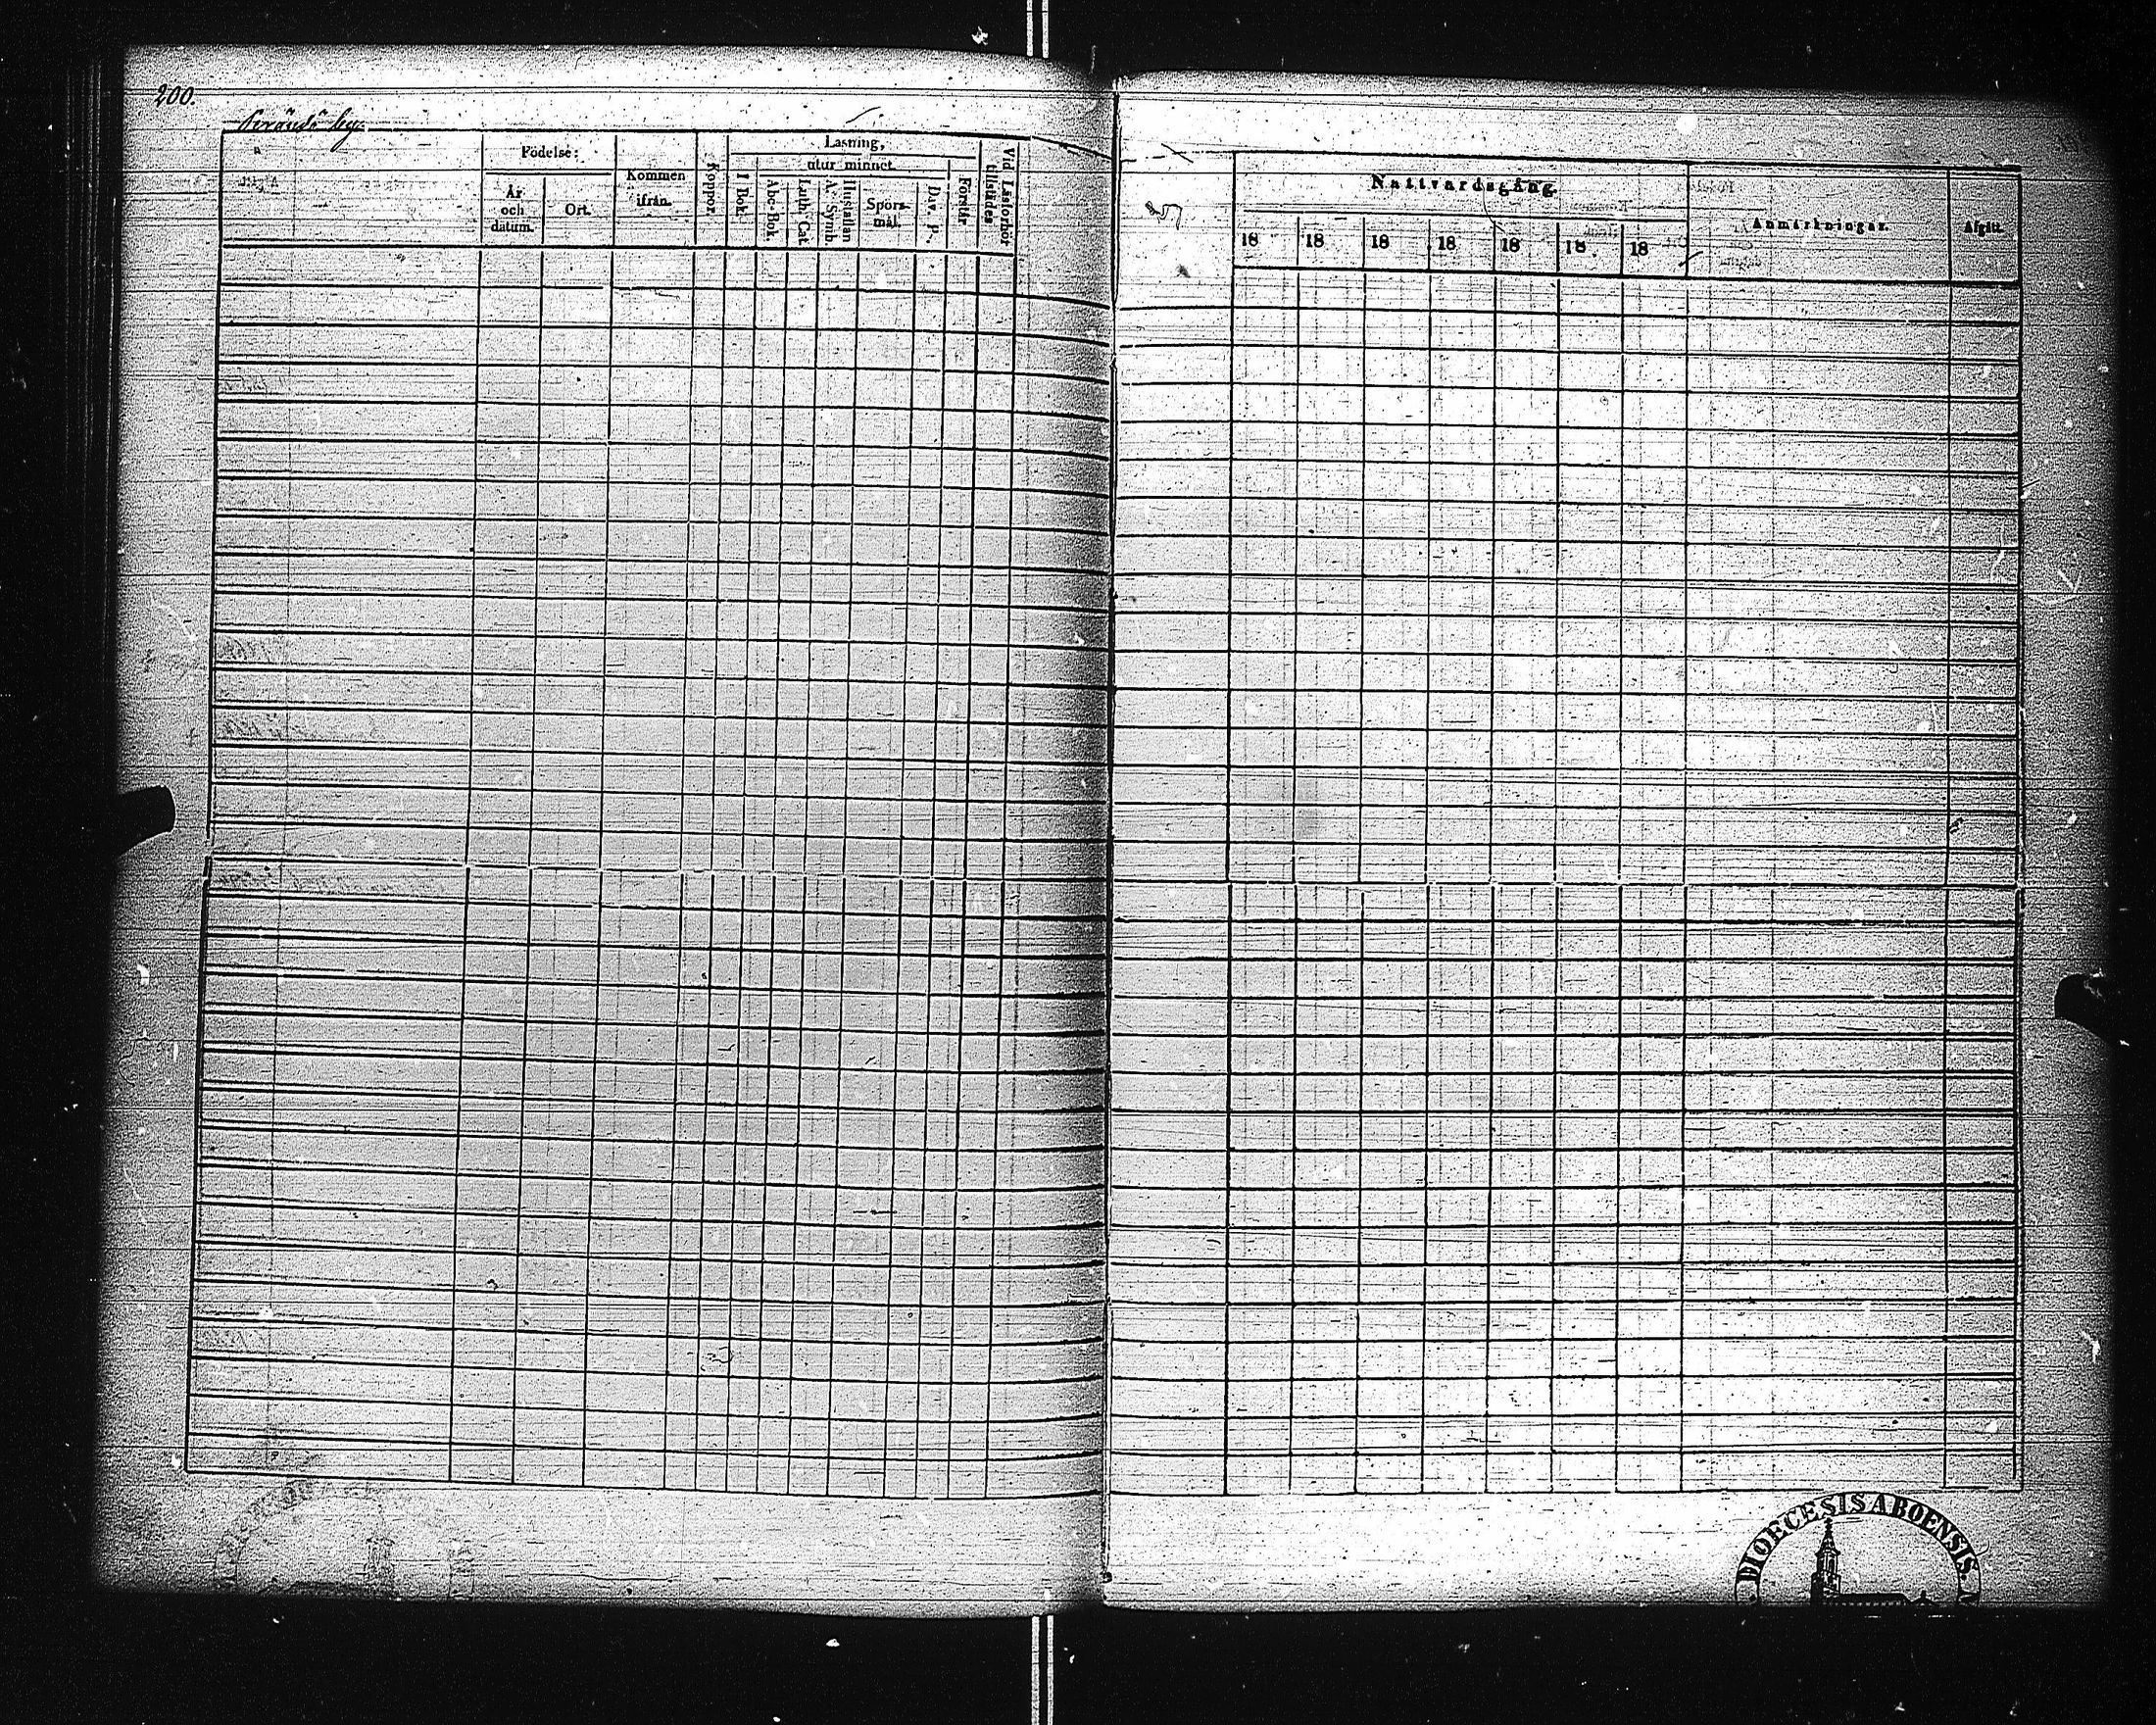 200.
by
Födelse:
År och datum.
Ort.
Kommen ifrån.
Koppor.
Läsning,
utur minnet.
I Bok.
Abc-Bok
Luth. Cat.
Hustaflan A. Symb.
Spörsmål.
Dav. P.
Förstår
Vid Läsförhör tillstädes
Nattvardsgång.
18 18 18 18 18 18. 18
Anmärkningar.
Afgått.
DIOECESIS ABOENSIS.